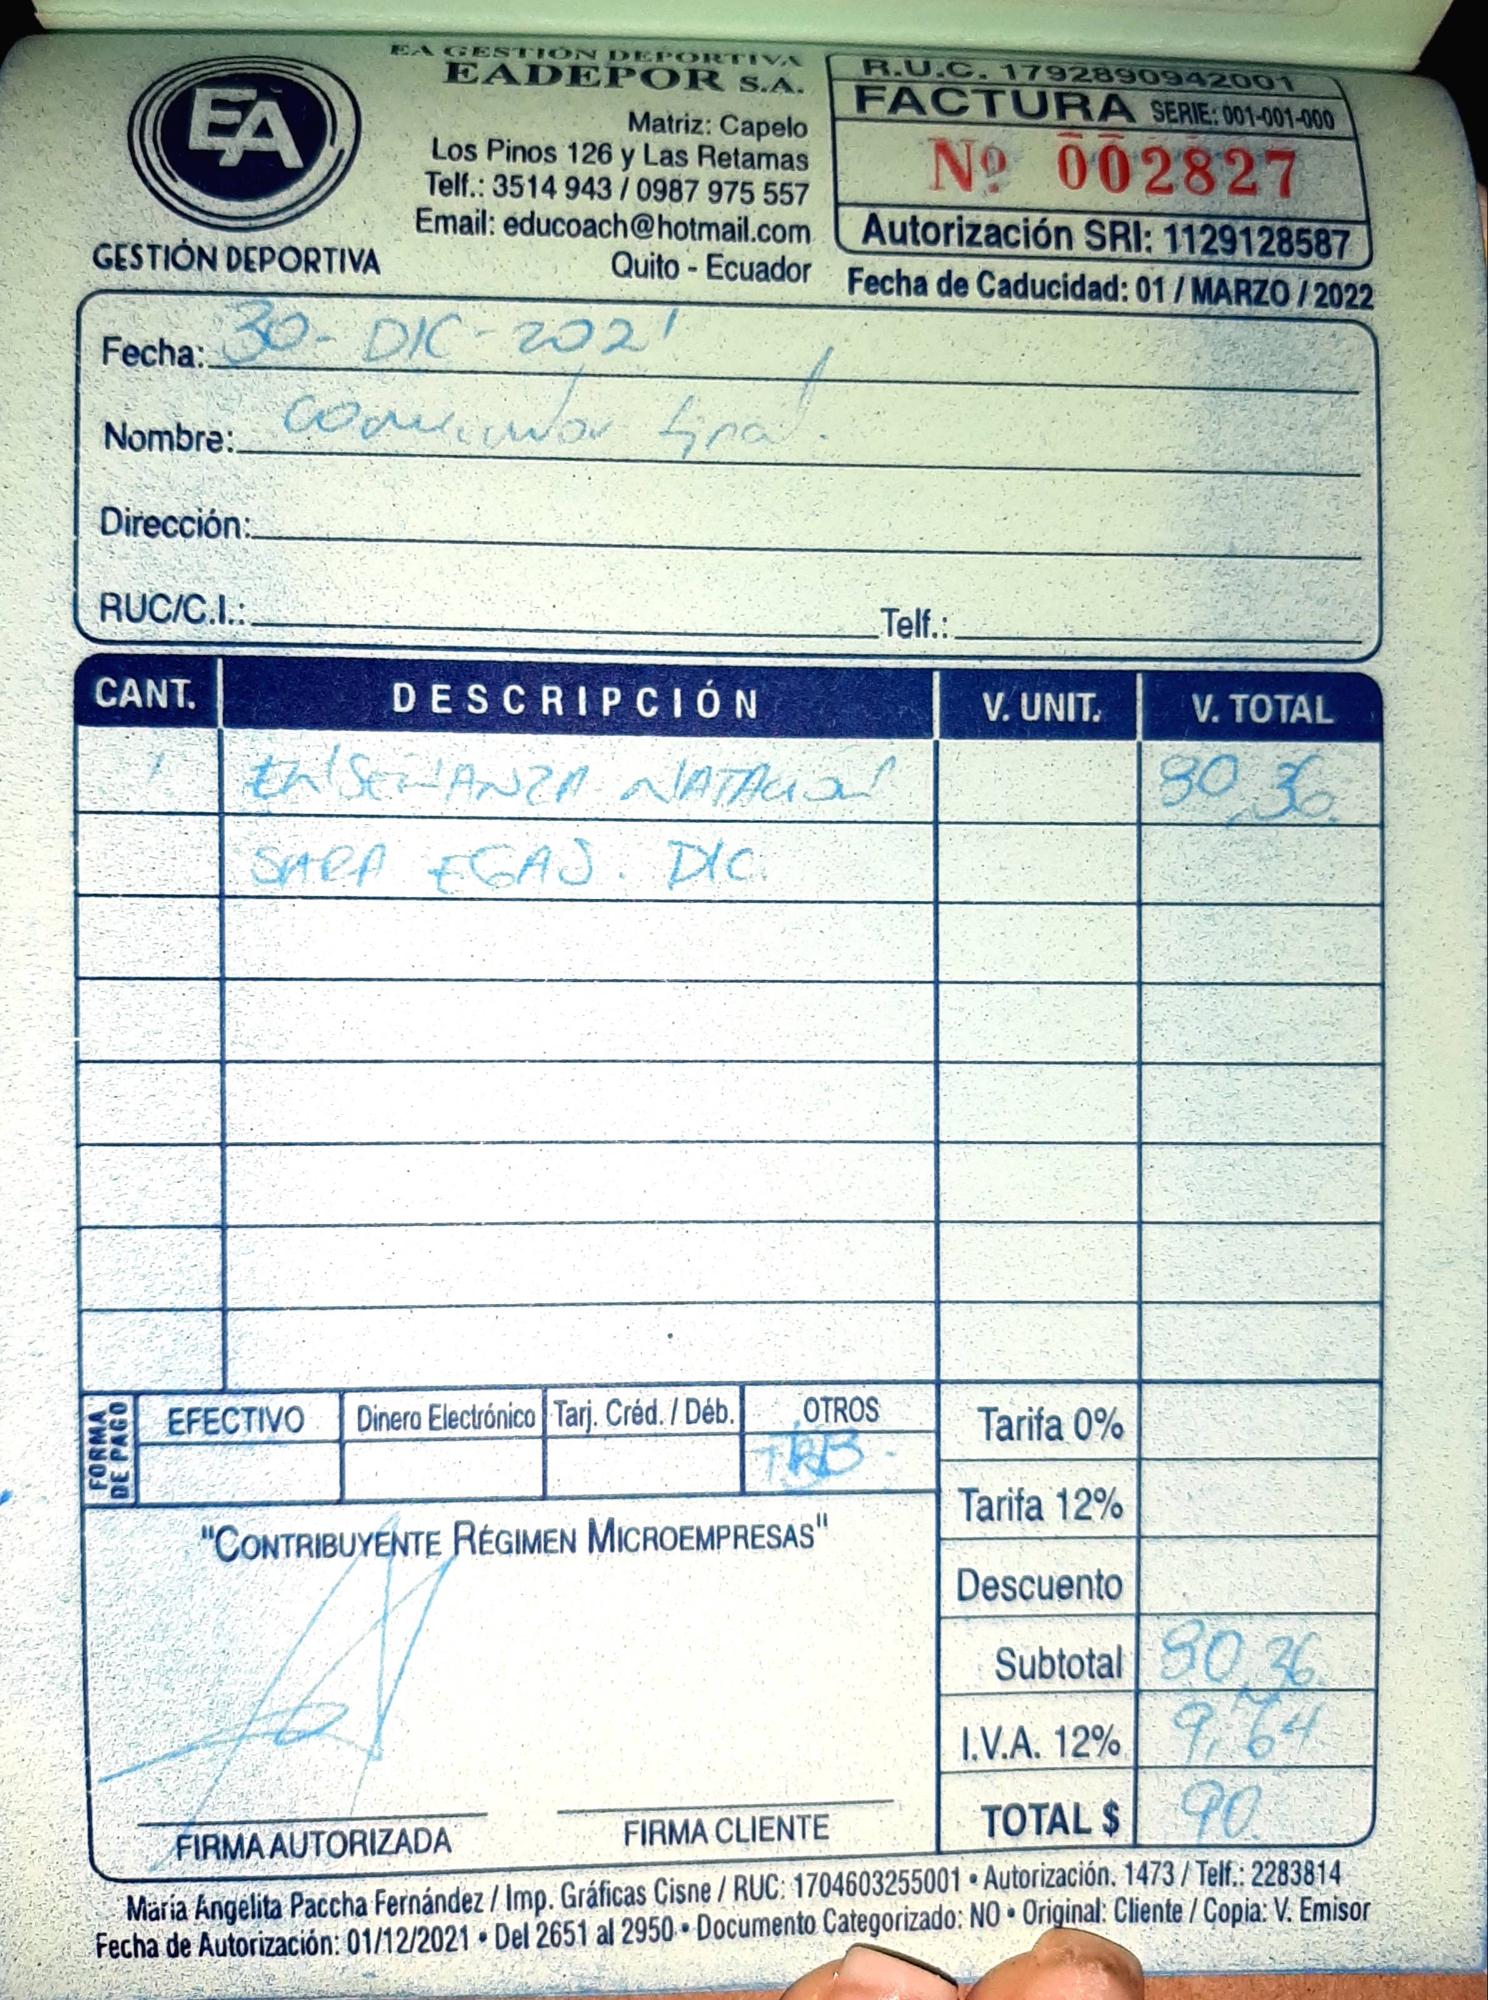 EA
GESTIÓN DEPORTIVA
EA GESTIÓN DEPORTIVA
EADEPOR S.A.
Matriz: Capelo
Los Pinos 126 y Las Retamas
Telf.: 3514 943 / 0987 975 557
Email: educoach@hotmail.com
Quito - Ecuador
R.U.C. 1792890942001
FACTURA SERIE: 001-001-000
Nº 002827
Autorización SRI: 1129128587
Fecha de Caducidad: 01 / MARZO / 2022
Fecha: 30-DIC-2021
Nombre: consumidor final.
Dirección:
RUC/C.I.: Telf.:
CANT. DESCRIPCIÓN V. UNIT. V. TOTAL
1 ENSEÑANZA NATACION 80,36
SARA EGAS. DIC.
FORMA DE PAGO
EFECTIVO Dinero Electrónico Tarj. Créd. / Déb. OTROS
Tarifa 0%
Tarifa 12%
"CONTRIBUYENTE RÉGIMEN MICROEMPRESAS"
Descuento
Subtotal 80,36
I.V.A. 12% 9,64
TOTAL $ 90
FIRMA AUTORIZADA FIRMA CLIENTE
María Angelita Paccha Fernández / Imp. Gráficas Cisne / RUC: 1704603255001 • Autorización. 1473 / Telf.: 2283814
Fecha de Autorización: 01/12/2021 • Del 2651 al 2950 • Documento Categorizado: NO • Original: Cliente / Copia: V. Emisor